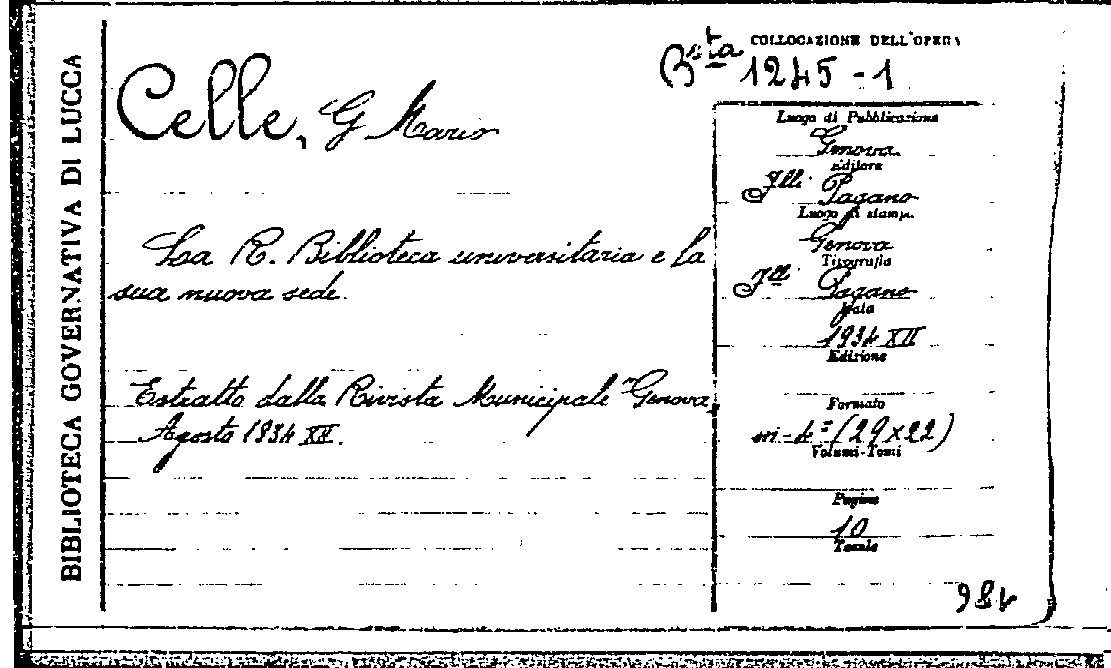 BIBLIOTECA GOVERNATIVA DI LUCCA
COLLOCAZIONE DELL'OPERA
Bsta 1245-1
Celle, G Mario
La R. Biblioteca universitaria e la
sua nuova sede.
Estratto dalla Rivista Municipale "Genova,
Agosto 1934 XII.
Luogo di Pubblicazione
Genova
Editore
Flli Pagano
Luogo di stampa
Genova
Tipografia
Flli Pagano
Data
1934 XII
Edizione
Formato
in-4º (29x22)
Volumi-Tomi
Pagine
10
Tavole